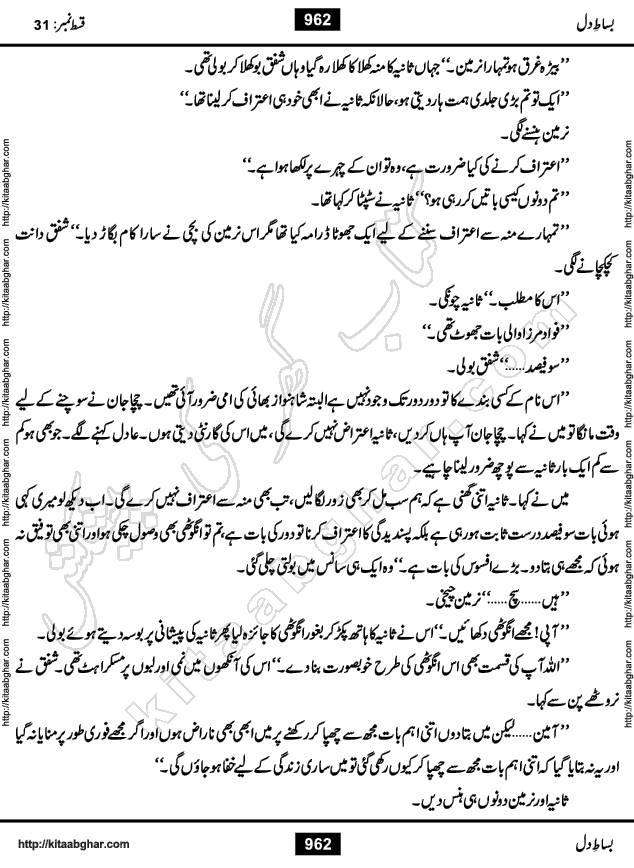 قسط نمبر: 31
962
بساطِ دل
’’بیڑہ غرق ہو تمہارا نرمین۔‘‘ جہاں ثانیہ کا منہ کھلا کا کھلا رہ گیا وہاں شفق بوکھلا کر بولی تھی۔
’’ایک تو تم بڑی جلدی ہمت ہار دیتی ہو، حالانکہ ثانیہ نے ابھی خود ہی اعتراف کر لینا تھا۔‘‘
نرمین ہنسنے لگی۔
’’اعتراف کرنے کی کیا ضرورت ہے، وہ تو ان کے چہرے پر لکھا ہوا ہے۔‘‘
’’تم دونوں کیسی باتیں کر رہی ہو؟‘‘ ثانیہ نے سٹپٹا کر کہا تھا۔
’’تمہارے منہ سے اعتراف سننے کے لیے ایک جھوٹا ڈرامہ کیا تھا مگر اس نرمین کی بچی نے سارا کام بگاڑ دیا۔‘‘ شفق دانت
کچکچانے لگی۔
’’اس کا مطلب۔‘‘ ثانیہ چونکی۔
’’فواد مرزا والی بات جھوٹ تھی۔‘‘
’’سو فیصد......‘‘ شفق بولی۔
’’اس نام کے کسی بندے کا تو دور دور تک وجود نہیں ہے البتہ شاہنواز بھائی کی امی ضرور آئی تھیں۔ چچا جان نے سوچنے کے لیے
وقت مانگا تو میں نے کہا۔ چچا جان آپ ہاں کر دیں، ثانیہ اعتراض نہیں کرے گی، میں اس کی گارنٹی دیتی ہوں۔ عادل کہنے لگے۔ جو بھی ہو کم
سے کم ایک بار ثانیہ سے پوچھ ضرور لینا چاہیے۔
میں نے کہا۔ ثانیہ اتنی گھنی ہے کہ ہم سب مل کر بھی زور لگا لیں، تب بھی منہ سے اعتراف نہیں کرے گی۔ اب دیکھ لو میری کہی
ہوئی بات سو فیصد درست ثابت ہو رہی ہے بلکہ پسندیدگی کا اعتراف کرنا تو دور کی بات ہے، تم تو انگوٹھی بھی وصول کر چکی ہو اور اتنی بھی توفیق نہ
ہوئی کہ مجھے ہی بتا دو۔ بڑے افسوس کی بات ہے۔‘‘ وہ ایک ہی سانس میں بولتی چلی گئی۔
’’ہیں......سچ......‘‘ نرمین چیخی۔
’’آپی! مجھے انگوٹھی دکھائیں۔‘‘ اس نے ثانیہ کا ہاتھ پکڑ کر بغور انگوٹھی کا جائزہ لیا پھر ثانیہ کی پیشانی پر بوسہ دیتے ہوئے بولی۔
’’اللہ آپ کی قسمت بھی اس انگوٹھی کی طرح خوبصورت بنا دے۔‘‘ اس کی آنکھوں میں نمی اور لبوں پر مسکراہٹ تھی۔ شفق نے
نروٹھے پن سے کہا۔
’’آمین......لیکن میں بتا دوں اتنی اہم بات مجھ سے چھپا کر رکھنے پر میں ابھی بھی ناراض ہوں اور اگر مجھے فوری طور پر منایا نہ گیا
اور یہ نہ بتایا گیا کہ اتنی اہم بات مجھ سے چھپا کر کیوں رکھی گئی تو میں ساری زندگی کے لیے خفا ہو جاؤں گی۔‘‘
ثانیہ اور نرمین دونوں ہی ہنس دیں۔
http://kitaabghar.com http://kitaabghar.com http://kitaabghar.com http://kitaabghar.com http://kitaabghar.com http://kitaabghar.com
http://kitaabghar.com http://kitaabghar.com http://kitaabghar.com http://kitaabghar.com http://kitaabghar.com http://kitaabghar.com
کتاب گھر کی پیشکش
kitaabghar.com
http://kitaabghar.com
962
بساطِ دل